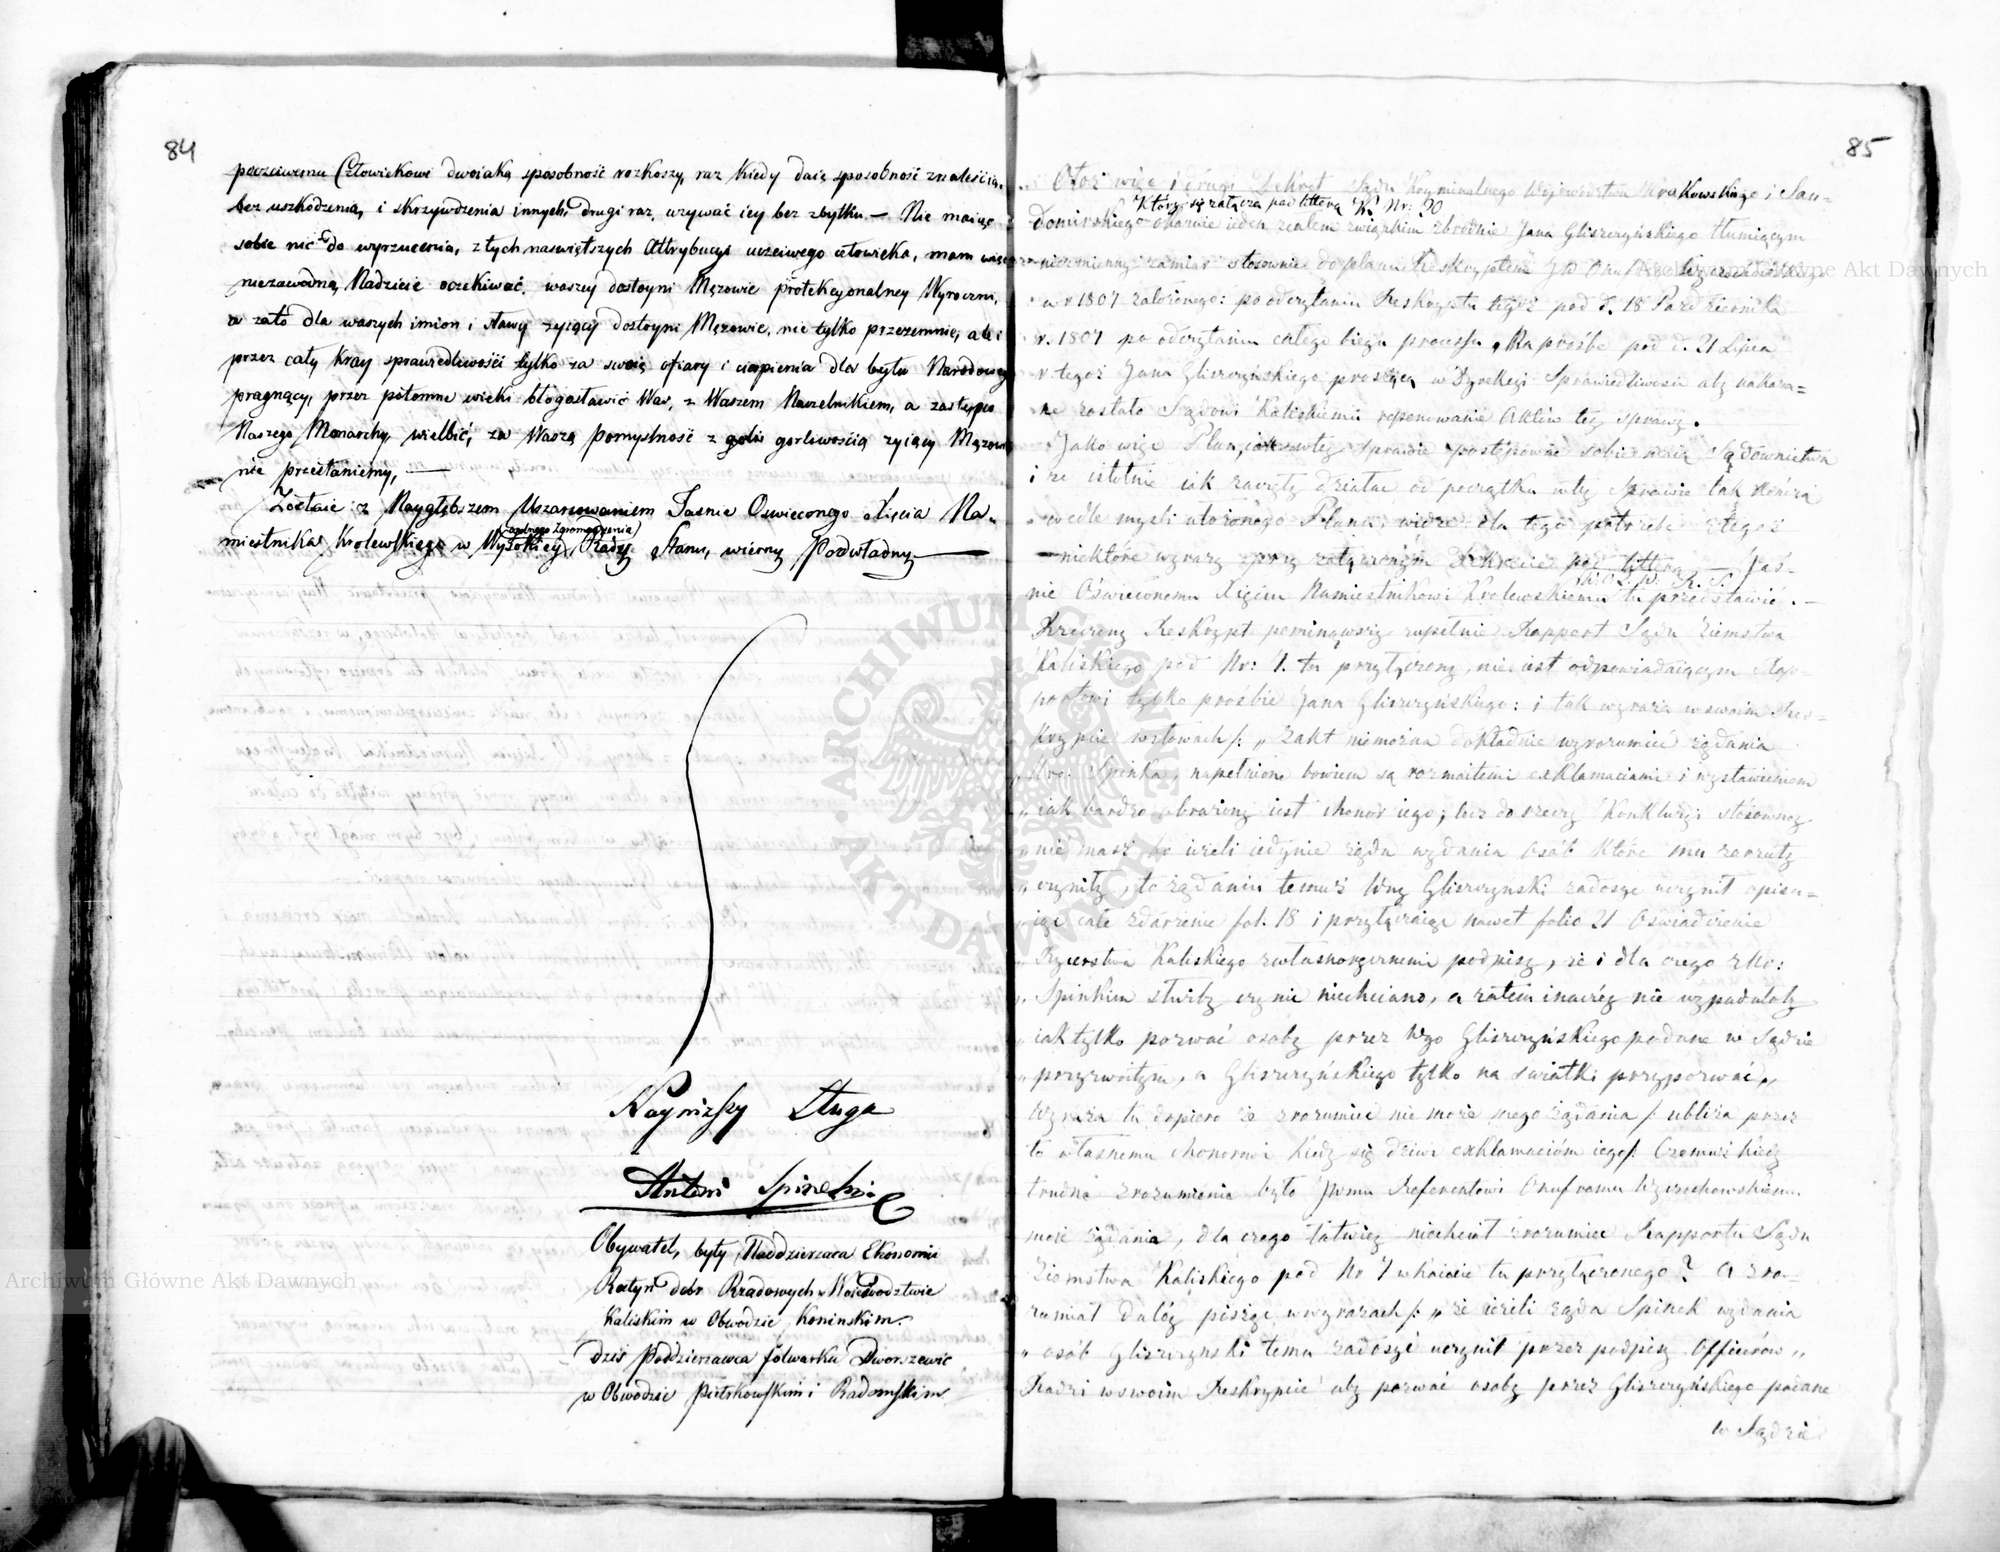 84
poczciwemu Człowiekowi dwoiaką sposobność rozkoszy, raz kiedy daią sposobność znaleścia
bez uszkodzenia, i skrzywdzenia innych, drugi raz, używać iey bez zbytku — Nie maiąc
sobie nic do wyrzucenia, z tych naświętszych Attrybucyi uczciwego człowieka, mam więc
niezawodną Nadzieię oczekiwać waszey dostoyni Mężowie protekcyonalney Wyroczni,
a zato dla waszych imion i sławy żyiący dostoyni Mężowie, nie tylko przezemnie, ale i
przez cały Kray sprawiedliwości tylko za swoie ofiary i cierpienia dla bytu Narodowego
pragnący, przez potomne wieki błogosławić Was, z Waszem Naczelnikiem, a zastępcą
Naszego Monarchy, wielbić, za Waszą pomyślność z gorliwością żyiący Mężowie
nie przestaniemy, —
Zostaię z Naygłębszem Uszanowaniem Jaśnie Oświeconego Xięcia Na-
(Ogólnego Zgromadzenia)
miestnika Krolewskiego w Wysokiey Rady Stanu, wierny Podwładny —
Naynizszy Sługa
Antoni Spinek
Obywatel, były Naddzierzawca Ekonomii
Dobr Rządowych w Woiewodztwie
Kaliskim w Obwodzie Koninskim.
dziś Poddzierzawca folwarku Dworszewic
w Obwodzie Piotrkowskim i Radomskim
85
Otoż więc i drugi Dekret Sądu Kryminalnego Woiewodztwa Krakowskiego i San-
Który się załącza pod litterą K. Nr: 20
domirskiego okaże ieden zealem związkim zbrodnie Jana Gliszczyńskiego tłumiącym
niezmienny zamiar stosownie do planu Reskryptem JW Onufrego Wyczechowskiego
w r 1807 założonego: po odczytaniu Reskryptu tegoż pod d. 18 Pazdziernika
r. 1807 po odczytaniu całego biegu processu, Na prośbę pod d. 21 Lipca
r tegoż Jana Gliszczyńskiego proszącą w Dyrekcyi Sprawiedliwości aby nakaza-
ne zostało Sądowi Kaliskiemu reponowanie Aktów tey sprawy.
Jako więc Plan w tey sprawie postępować sobie Sądownictwa
i że istotnie iak zaczęty działać od początku w tey Sprawie tak kończą
wedle myśli ułożonego Planu widzę dla tego potrzebę z tegoż
niektóre wyrazy przy załączonym Dekrecie pod litterą — Jaś-
nie Oświeconemu Xięciu Namiestnikowi Krolewskiemu tu przedstawić. —
Rzeczony Reskrypt pominąwszy zupełnie Rapport Sądu Ziemstwa
Kaliskiego pod Nr: 7. tu przyłączony, nie iest odpowiadaiącym Rap-
portowi tylko prośbie Jana Gliszczyńskiego: i tak wyraża w swoim Res-
krypcie w słowach /: „ z akt niemożna dokładnie wyrozumieć żądania
Ur. Spinka, napełnione bowiem są rozmaitemi exklamaciami i wystawieniem
„ iak bardzo obrażony iest chonor iego; lecz do rzeczy Konkluzyi stosowney
„ nie masz bo ieżeli iedynie żąda wydania osób które mu zarzuty
„ czyniły, to żądaniu temuż Wny Gliszczyński zadosyć uczynił opisu-
iąc całe zdarzenie fol. 18 i przyłączaiąc nawet folio 21 Oświadczenie
Rycerstwa Kaliskiego z własnoręcznemi podpisy, że i dla czego z Ur:
„ Spinkim służby czynić niechciano, a zatem inaczéy nie wypadałoby
„ iak tylko pozwać osoby przez Wgo Gliszczyńskiego podane w Sądzie
„ przyzwoitym, a Gliszczyńskiego tylko na świadki przypozwać „
Wyraża tu dopiero że zrozumieć nie może mego żądania /: ubliża przez
to własnemu chonorowi kiedy się dziwi exklamacióm iego/: Czemuż kiedy
trudne zrozumienia było JWmu Referentowi Onufremu Wyczechowskiemu
moie żądania, dla czego łatwiéy niechciał zrozumieć Rapportu Sądu
Ziemstwa Kaliskiego pod Nr 7 tu przyłączonego? A zro-
zumiał daléy pisząc w wyrazach /: „ że ieżeli żąda Spinek wydania
„ osób Gliszczyński temu zadosyć uczynił przez podpisy Officerów „
Radzi w swoim Reskrypcie aby pozwać osoby przez Gliszczyńskiego podane
w Sądzie